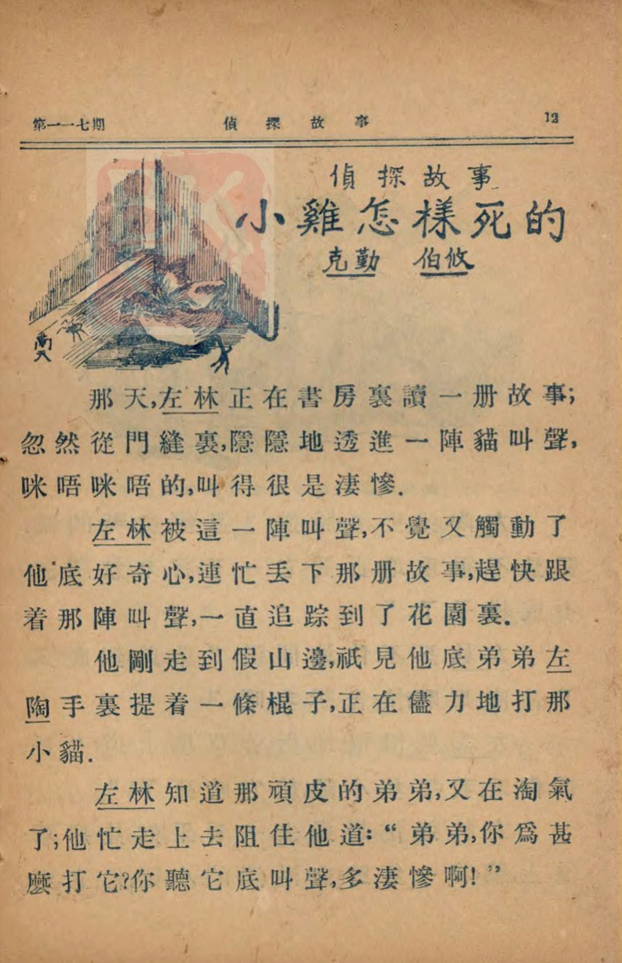 第一一七期 偵探故事 12
偵探故事
小雞怎樣死的
克勤 伯攸
那天,左林正在書房裏讀一册故事;
忽然從門縫裏,隱隱地透進一陣貓叫聲,
咪唔咪唔的,叫得很是淒慘.
左林被這一陣叫聲,不覺又觸動了
他底好奇心,連忙丢下那册故事,趕快跟
着那陣叫聲,一直追踪到了花園裏.
他剛走到假山邊,祇見他底弟弟左
陶手裏提着一條棍子,正在儘力地打那
小貓.
左林知道那頑皮的弟弟,又在淘氣
了;他忙走上去阻住他道:“弟弟,你爲甚
麼打它?你聽它底叫聲,多淒慘啊!”